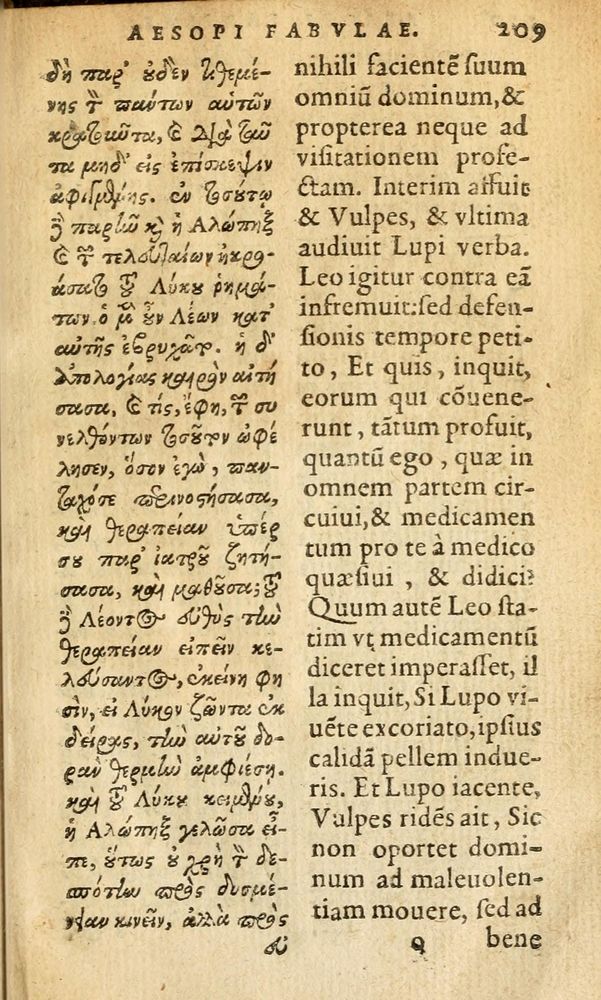 AESOPI FABVLAE. 209
δὴ παρ' οὐδὲν τιθεμέ-
νης τὸν πάντων αὐτῶν
κρατοῦντα, καὶ διὰ ταῦ
τα μηδ' εἰς ἐπίσκεψιν
ἀφιγμένης. ἐν τοσούτῳ
δὲ παρῆν καὶ ἡ Αλώπηξ
καὶ τῶν τελευταίων ἠκρο-
άσατο τοῦ Λύκου ῥημά-
των. ὁ μὲν οὖν Λέων κατ'
αὐτῆς ἐβρυχᾶτο. ἡ δ'
ἀπολογίας καιρὸν αἰτή
σασα, καὶ τίς, ἔφη, τῶν συ
νελθόντων τοσοῦτον ὠφέ
λησεν, ὅσον ἐγὼ, παν-
ταχόσε περινοστήσασα,
καὶ θεραπείαν ὑπέρ
σου παρ' ἰατροῦ ζητή-
σασα, καὶ μαθοῦσα; τοῦ
δὲ Λέοντος εὐθὺς τὴν
θεραπείαν εἰπεῖν κε-
λεύσαντος, ἐκείνη φη
σὶν, εἰ Λύκον ζῶντα ἐκ
δείρας, τὴν αὐτοῦ δο-
ρὰν θερμὴν ἀμφιέσῃ.
καὶ τοῦ Λύκου κειμένου,
ἡ Αλώπηξ γελῶσα εἶ-
πε, οὕτως οὐ χρὴ τὸν δε-
σπότην πρὸς δυσμέ-
νειαν κινεῖν, ἀλλὰ πρὸς
εὐ
nihili facientē suum
omniū dominum, &
propterea neque ad
visitationem profe-
ctam. Interim affuit
& Vulpes, & vltima
audiuit Lupi verba.
Leo igitur contra eā
infremuit: sed defen-
sionis tempore peti-
to, Et quis, inquit,
eorum qui cōuene-
runt, tātum profuit,
quantū ego, quæ in
omnem partem cir-
cuiui, & medicamen
tum pro te à medico
quæsiui, & didici?
Quum autē Leo sta-
tim vt medicamentū
diceret imperasset, il
la inquit, Si Lupo vi-
uēte excoriato, ipsius
calidā pellem indue-
ris. Et Lupo iacente,
Vulpes ridēs ait, Sic
non oportet domi-
num ad maleuolen-
tiam mouere, sed ad
Q bene